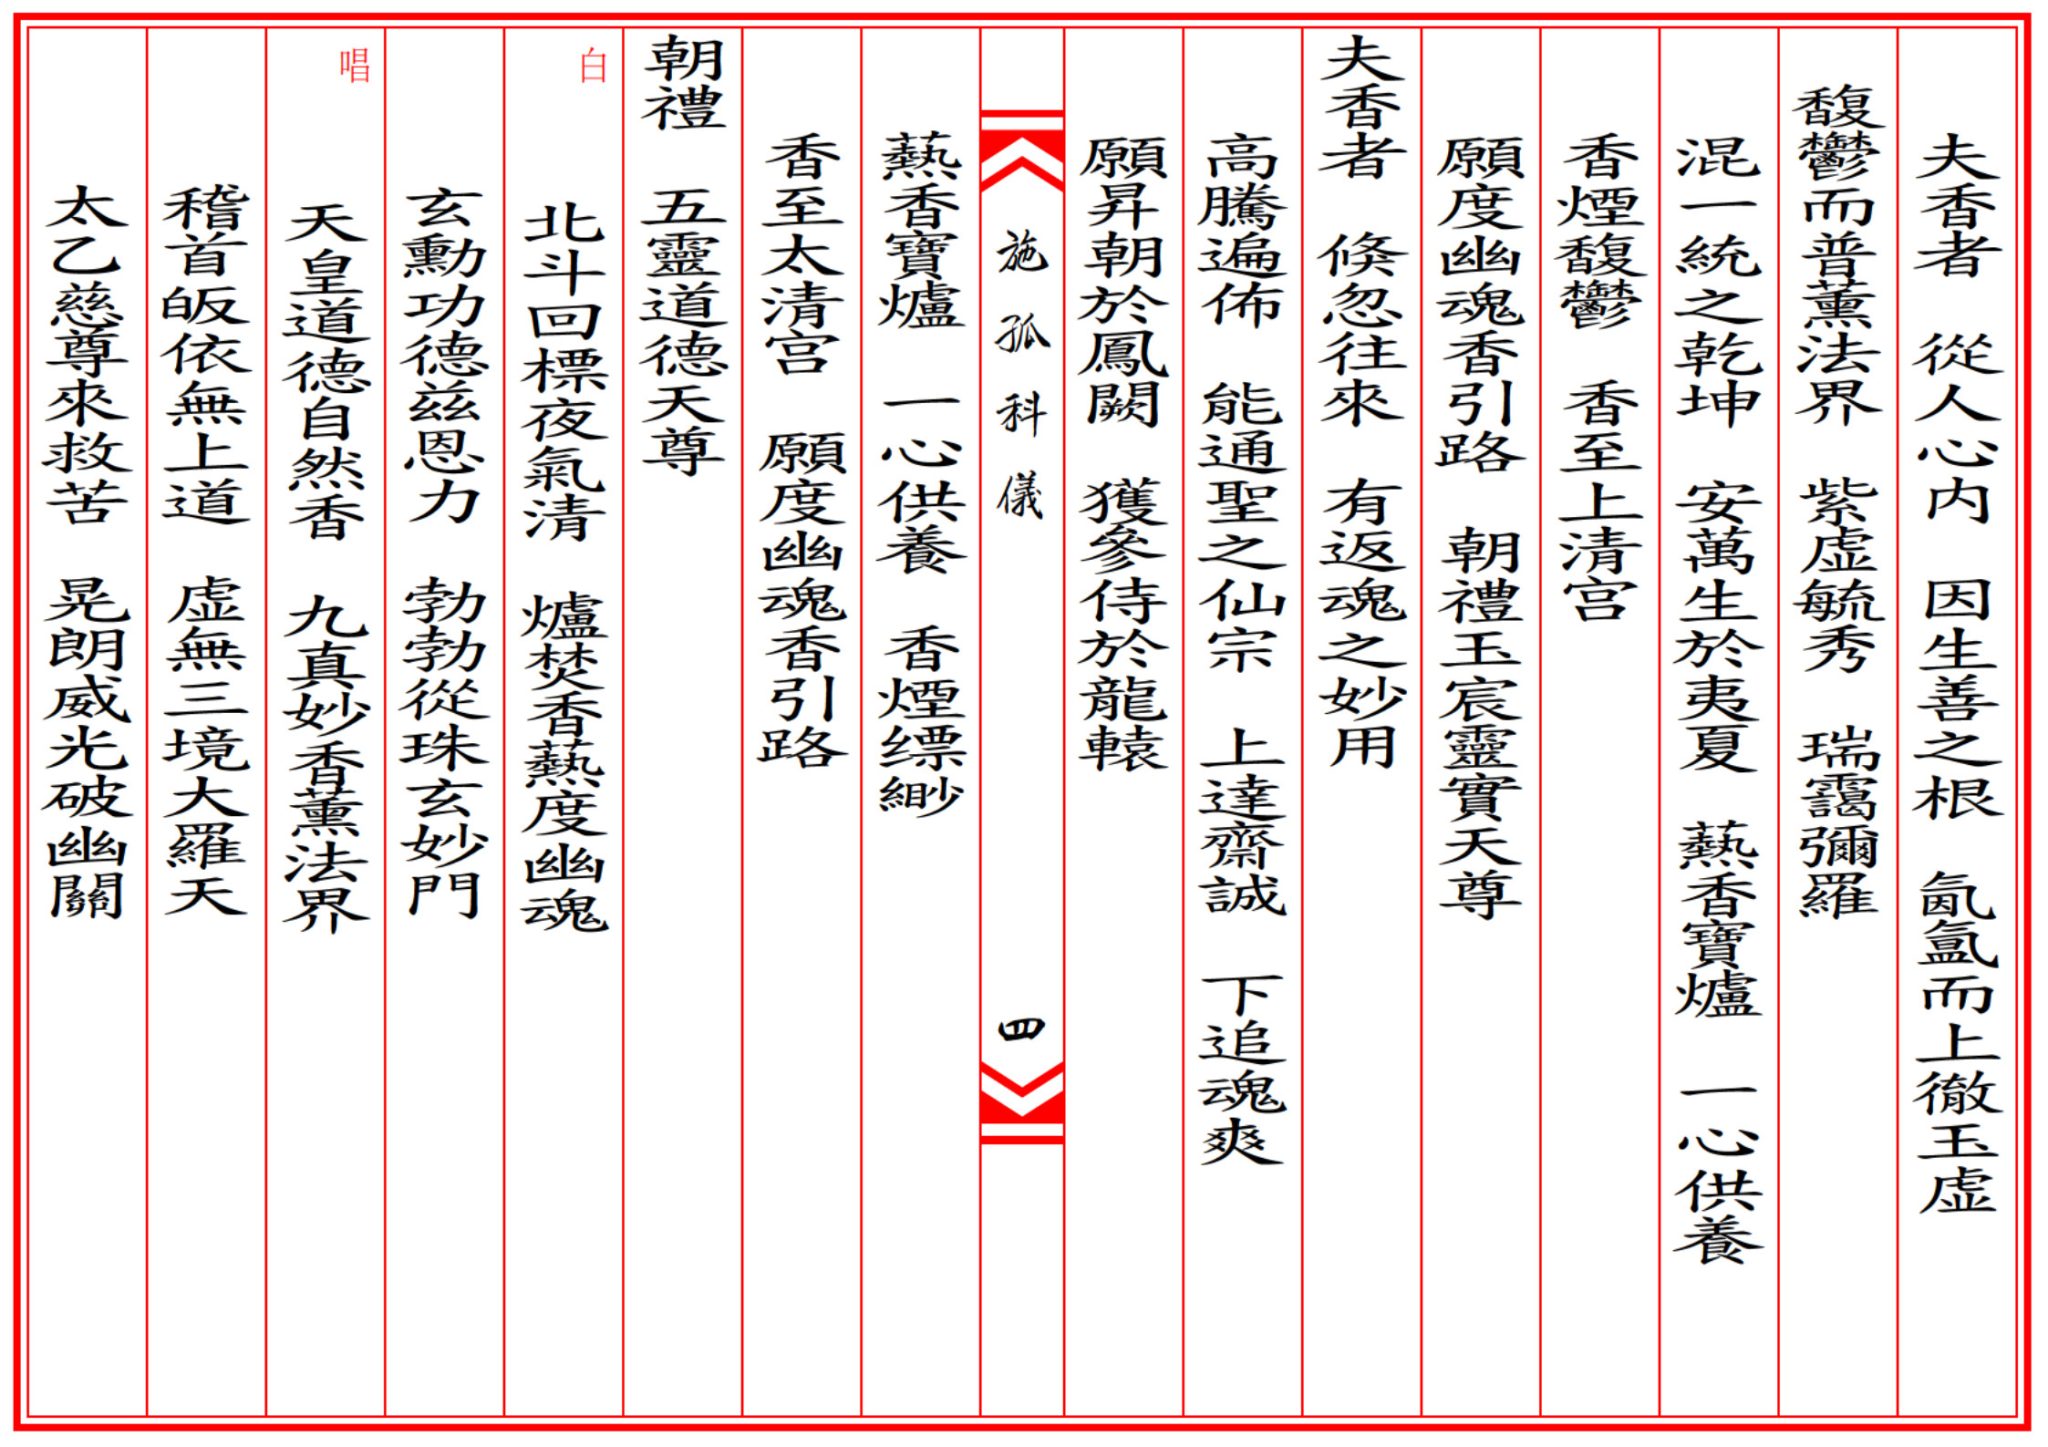 夫香者　從人心内　因生善之根　氤氳而上徹玉虛
馥鬱而普薰法界　紫虛毓秀　瑞靄彌羅
混一統之乾坤　安萬生於夷夏　爇香寶爐　一心供養
香煙馥鬱　香至上清宫
願度幽魂香引路　朝禮玉宸靈寶天尊
夫香者　倏忽往來　有返魂之妙用
高騰遍佈　能通聖之仙宗　上達齋誠　下追魂爽
願昇朝於鳳闕　獲參侍於龍轅
施孤科儀　四
爇香寶爐　一心供養　香煙缥緲
香至太清宫　願度幽魂香引路
朝禮　五靈道德天尊
白　北斗回標夜氣清　爐焚香爇度幽魂
玄勳功德兹恩力　勃勃從珠玄妙門
唱　天皇道德自然香　九真妙香薰法界
稽首皈依無上道　虛無三境大羅天
太乙慈尊來救苦　晃朗威光破幽關